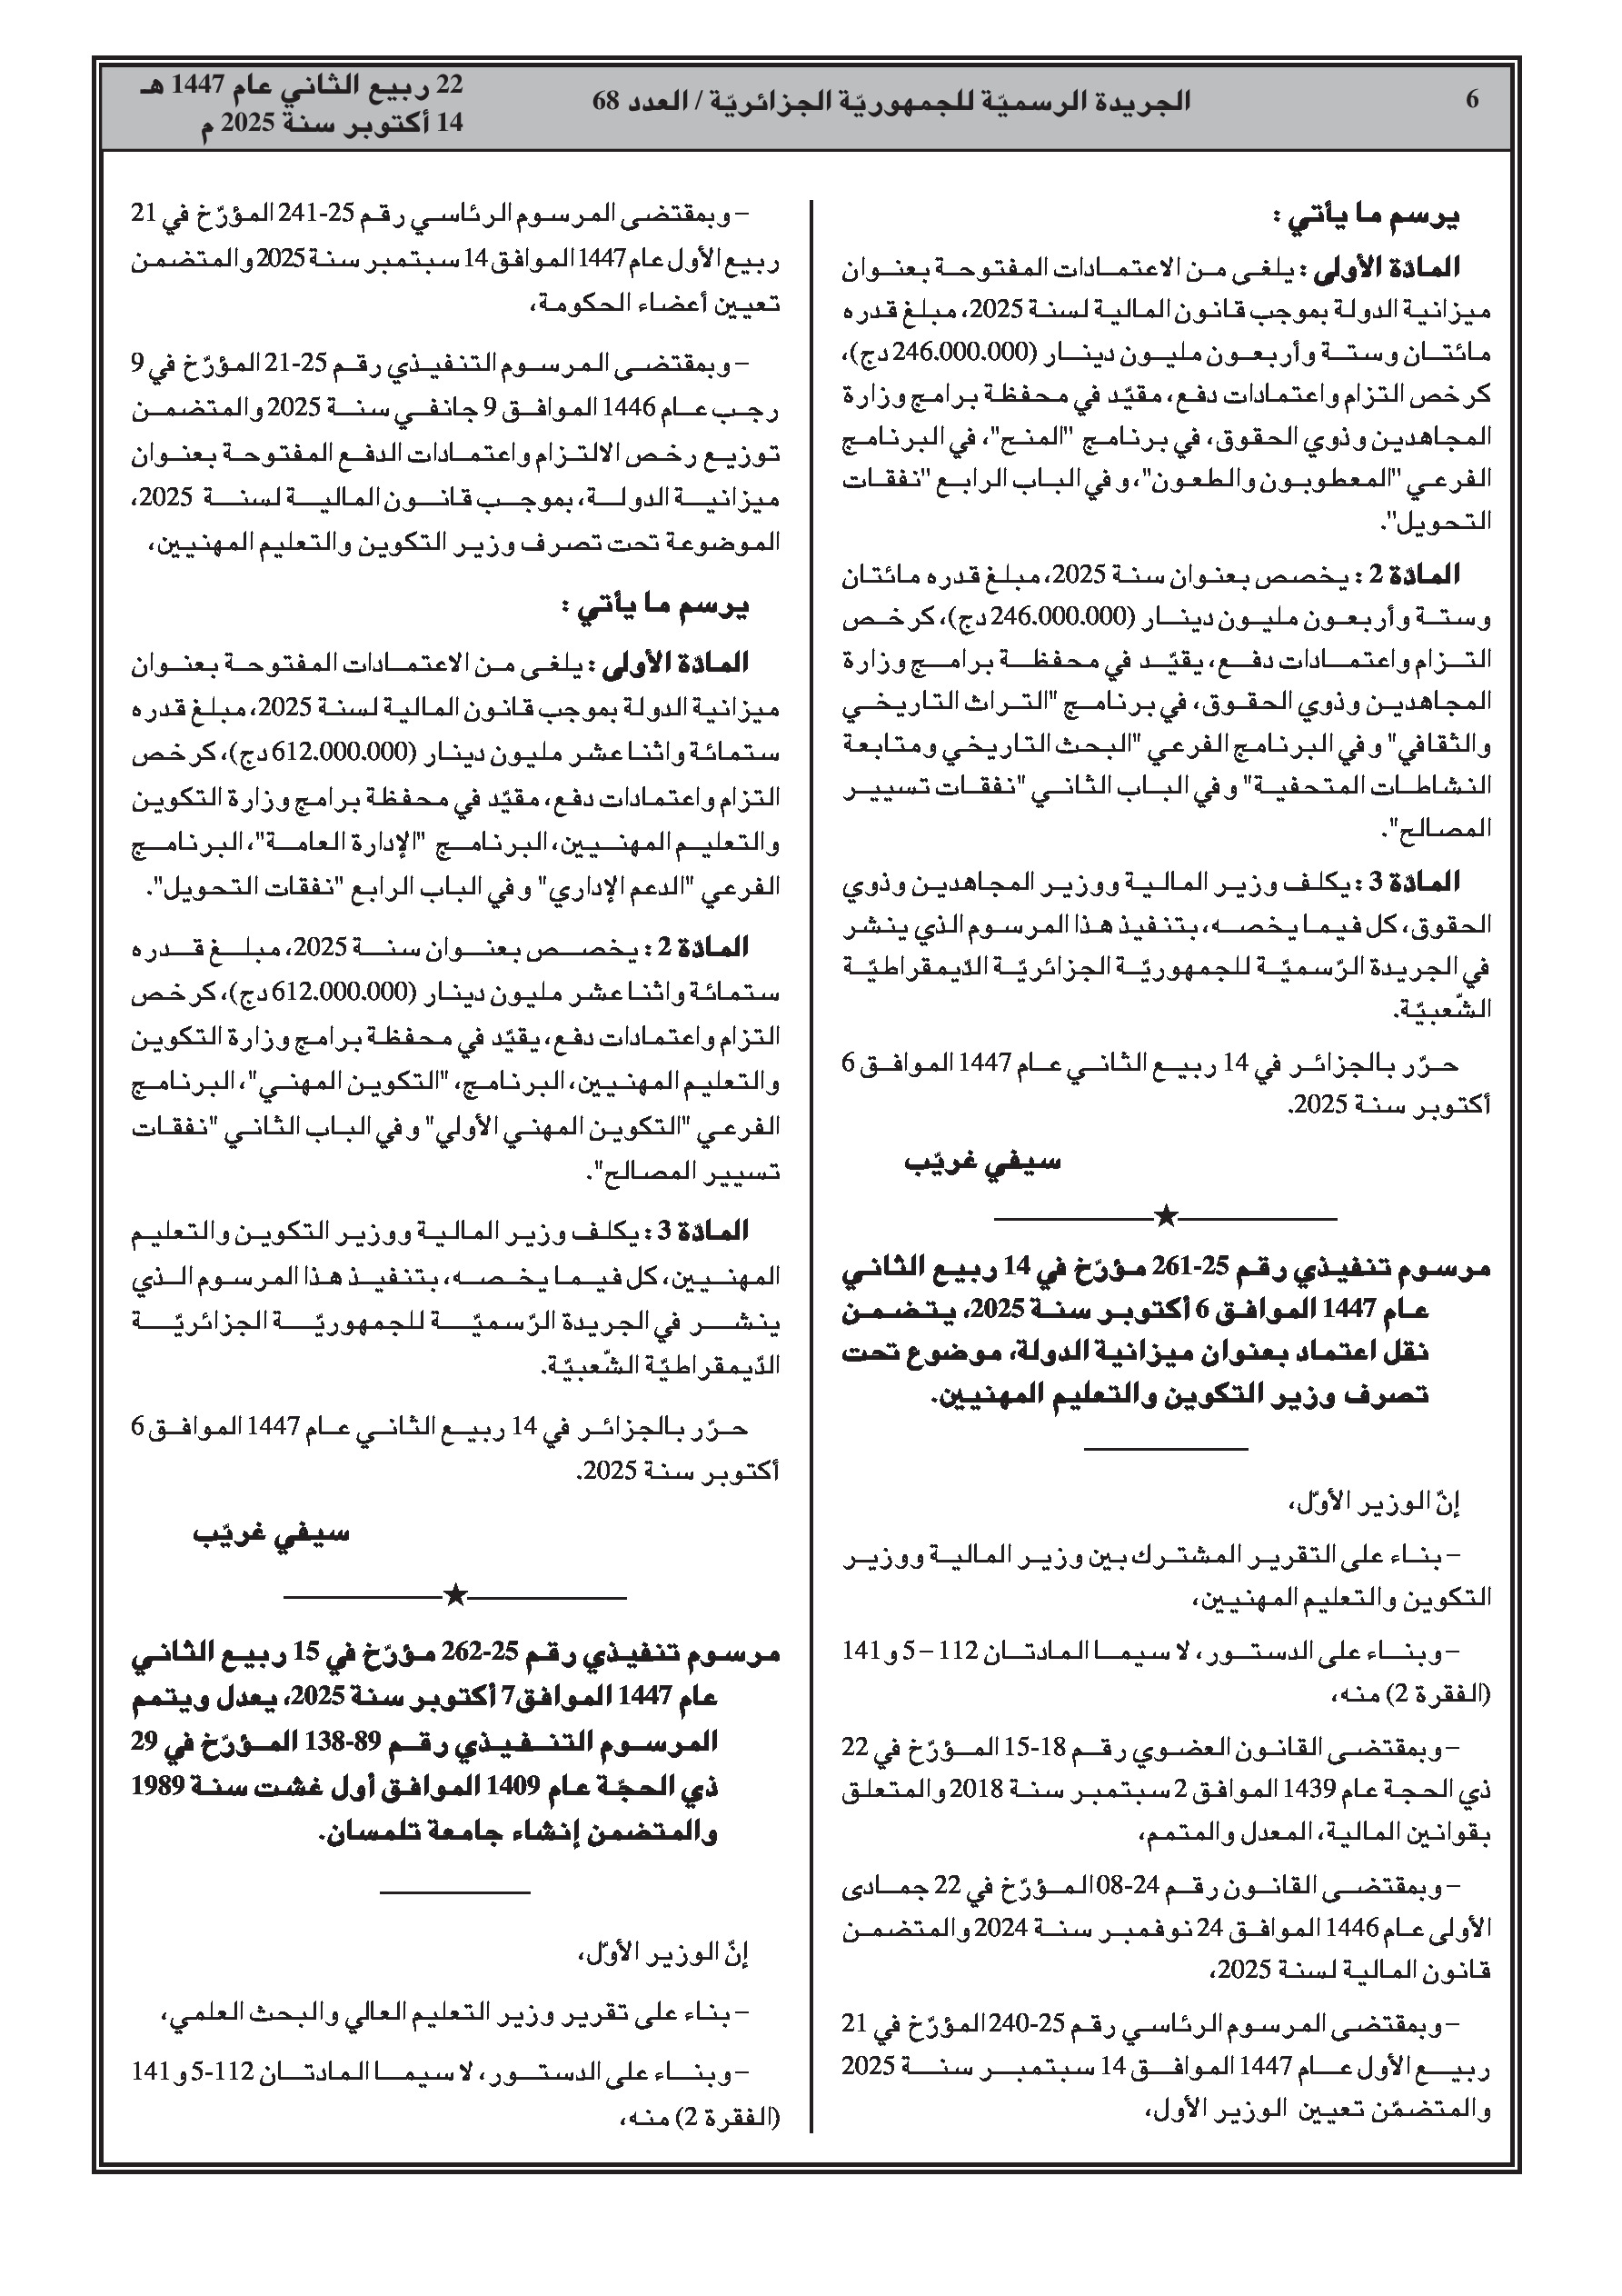 6
الجريدة الرسميّة للجمهوريّة الجزائريّة / العدد 68
22 ربيع الثاني عام 1447 هـ
14 أكتوبر سنة 2025 م
يرسم ما يأتي :
المادّة الأولى : يلغى من الاعتمادات المفتوحة بعنوان
ميزانية الدولة بموجب قانون المالية لسنة 2025، مبلغ قدره
مائتان وستة وأربعون مليون دينار (246.000.000 دج)،
كرخص التزام واعتمادات دفع، مقيّد في محفظة برامج وزارة
المجاهدين وذوي الحقوق، في برنامج "المنح"، في البرنامج
الفرعي "المعطوبون والطعون"، وفي الباب الرابع "نفقات
التحويل".
المادّة 2 : يخصص بعنوان سنة 2025، مبلغ قدره مائتان
وستة وأربعون مليون دينار (246.000.000 دج)، كرخص
التزام واعتمادات دفع، يقيّد في محفظة برامج وزارة
المجاهدين وذوي الحقوق، في برنامج "التراث التاريخي
والثقافي" وفي البرنامج الفرعي "البحث التاريخي ومتابعة
النشاطات المتحفية" وفي الباب الثاني "نفقات تسيير
المصالح".
المادّة 3 : يكلف وزير المالية ووزير المجاهدين وذوي
الحقوق، كل فيما يخصه، بتنفيذ هذا المرسوم الذي ينشر
في الجريدة الرّسميّة للجمهوريّة الجزائريّة الدّيمقراطيّة
الشّعبيّة.
حرّر بالجزائر في 14 ربيع الثاني عام 1447 الموافق 6
أكتوبر سنة 2025.
سيفي غريّب
مرسوم تنفيذي رقم 25-261 مؤرّخ في 14 ربيع الثاني
عام 1447 الموافق 6 أكتوبر سنة 2025، يتضمن
نقل اعتماد بعنوان ميزانية الدولة، موضوع تحت
تصرف وزير التكوين والتعليم المهنيين.
إنّ الوزير الأوّل،
– بناء على التقرير المشترك بين وزير المالية ووزير
التكوين والتعليم المهنيين،
– وبناء على الدستور، لا سيما المادتان 112 – 5 و141
(الفقرة 2) منه،
– وبمقتضى القانون العضوي رقم 18-15 المؤرّخ في 22
ذي الحجة عام 1439 الموافق 2 سبتمبر سنة 2018 والمتعلق
بقوانين المالية، المعدل والمتمم،
– وبمقتضى القانون رقم 24-08 المؤرّخ في 22 جمادى
الأولى عام 1446 الموافق 24 نوفمبر سنة 2024 والمتضمن
قانون المالية لسنة 2025،
– وبمقتضى المرسوم الرئاسي رقم 25-240 المؤرّخ في 21
ربيع الأول عام 1447 الموافق 14 سبتمبر سنة 2025
والمتضمّن تعيين الوزير الأول،
– وبمقتضى المرسوم الرئاسي رقم 25-241 المؤرّخ في 21
ربيع الأول عام 1447 الموافق 14 سبتمبر سنة 2025 والمتضمن
تعيين أعضاء الحكومة،
– وبمقتضى المرسوم التنفيذي رقم 25-21 المؤرّخ في 9
رجب عام 1446 الموافق 9 جانفي سنة 2025 والمتضمن
توزيع رخص الالتزام واعتمادات الدفع المفتوحة بعنوان
ميزانية الدولة، بموجب قانون المالية لسنة 2025،
الموضوعة تحت تصرف وزير التكوين والتعليم المهنيين،
يرسم ما يأتي :
المادّة الأولى : يلغى من الاعتمادات المفتوحة بعنوان
ميزانية الدولة بموجب قانون المالية لسنة 2025، مبلغ قدره
ستمائة واثنا عشر مليون دينار (612.000.000 دج)، كرخص
التزام واعتمادات دفع، مقيّد في محفظة برامج وزارة التكوين
والتعليم المهنيين، البرنامج "الإدارة العامة"، البرنامج
الفرعي "الدعم الإداري" وفي الباب الرابع "نفقات التحويل".
المادّة 2 : يخصص بعنوان سنة 2025، مبلغ قدره
ستمائة واثنا عشر مليون دينار (612.000.000 دج)، كرخص
التزام واعتمادات دفع، يقيّد في محفظة برامج وزارة التكوين
والتعليم المهنيين، البرنامج، "التكوين المهني"، البرنامج
الفرعي "التكوين المهني الأولي" وفي الباب الثاني "نفقات
تسيير المصالح".
المادّة 3 : يكلف وزير المالية ووزير التكوين والتعليم
المهنيين، كل فيما يخصه، بتنفيذ هذا المرسوم الذي
ينشر في الجريدة الرّسميّة للجمهوريّة الجزائريّة
الدّيمقراطيّة الشّعبيّة.
حرّر بالجزائر في 14 ربيع الثاني عام 1447 الموافق 6
أكتوبر سنة 2025.
سيفي غريّب
مرسوم تنفيذي رقم 25-262 مؤرّخ في 15 ربيع الثاني
عام 1447 الموافق 7 أكتوبر سنة 2025، يعدل ويتمم
المرسوم التنفيذي رقم 89-138 المؤرّخ في 29
ذي الحجّة عام 1409 الموافق أول غشت سنة 1989
والمتضمن إنشاء جامعة تلمسان.
إنّ الوزير الأوّل،
– بناء على تقرير وزير التعليم العالي والبحث العلمي،
– وبناء على الدستور، لا سيما المادتان 112-5 و141
(الفقرة 2) منه،